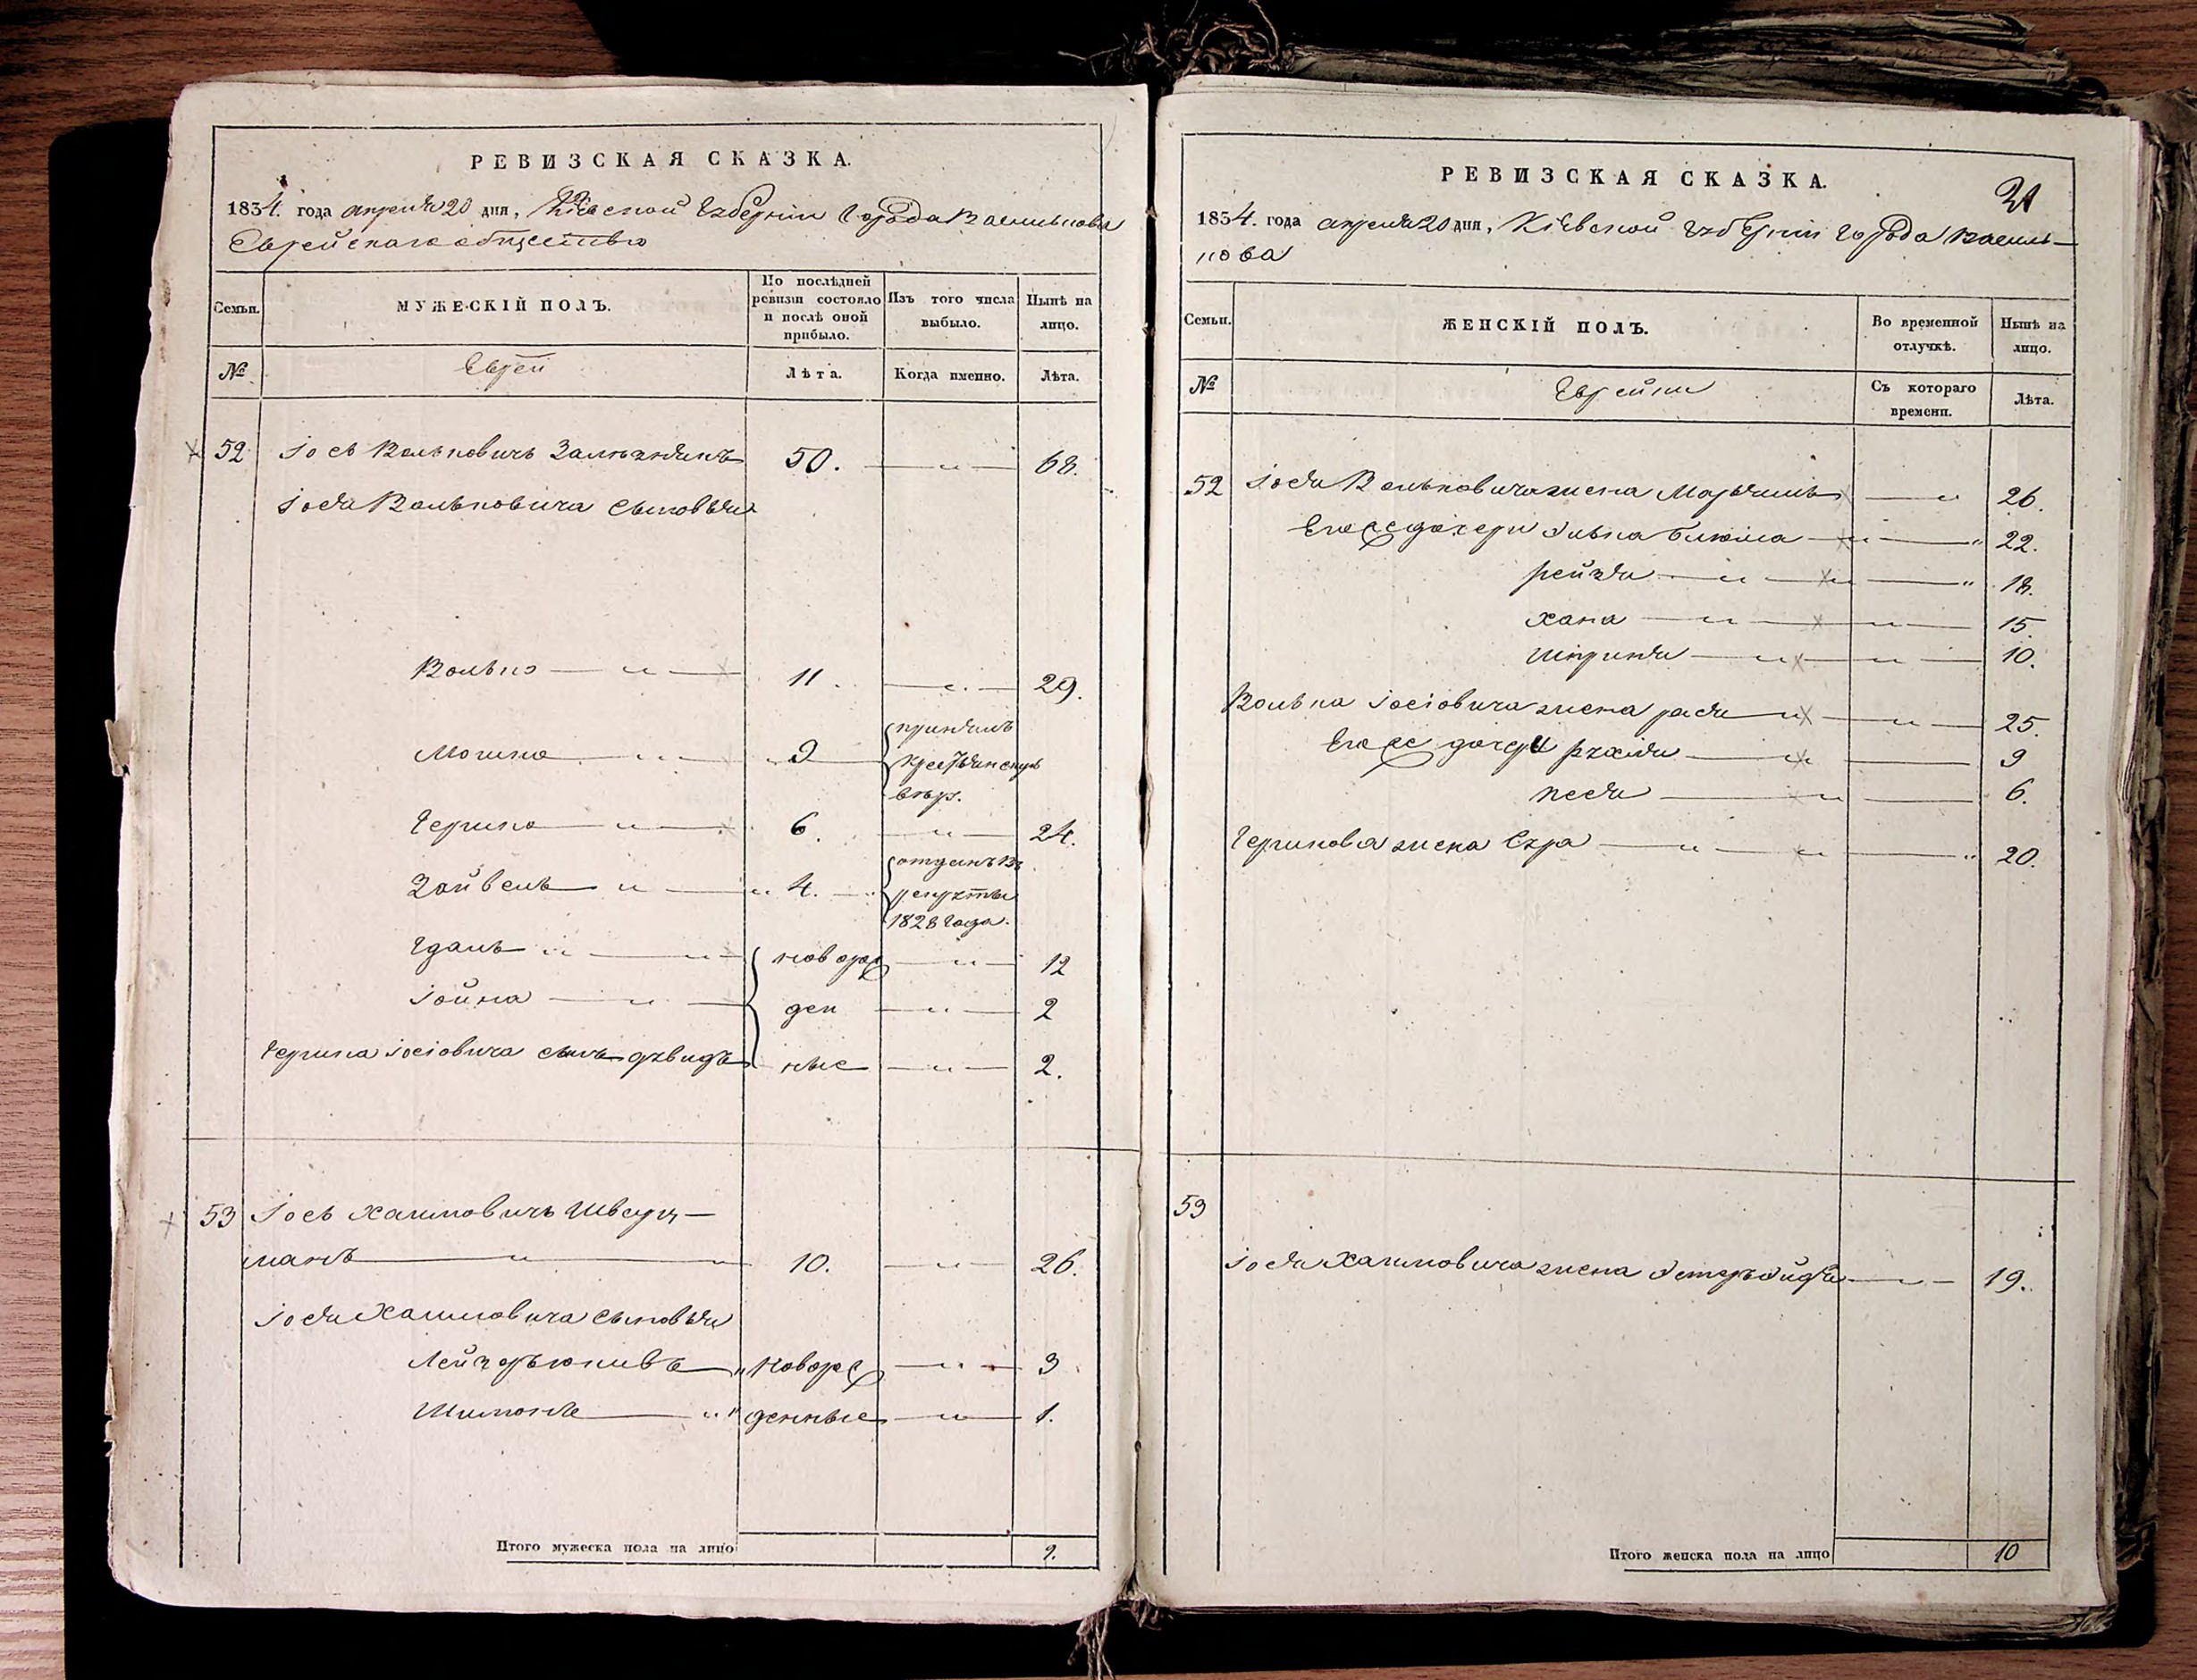 РЕВИЗСКАЯ СКАЗКА.
1834. года апреля 20 дня, Кіевской Губерніи Города Василькова
Еврейскаго общества
Семьи.
МУЖЕСКІЙ ПОЛЪ.
По послѣдней ревизіи состояло и послѣ оной прибыло.
Изъ того числа выбыло.
Нынѣ на лицо.
№
Евреи
Лѣта.
Когда именно.
Лѣта.
52 Іось Вольковичъ 50. 68.
Іося Вольковича сыновья
Волько 11. 29.
Мошко 9 принялъ
крестьянскую
вѣру.
Гершко 6. 24.
Зайвель 4. отданъ въ
рекруты
1828 года.
Удаль новорож 12
Іойна ден 2
Гершка Іосіовича сынъ Дувидъ ные 2.
53 Іось Хаимовичъ Шварц-
манъ 10. 26.
Іося Хаимовича сыновья
новорож 3
Шимонъ денные 1.
Итого мужеска пола на лицо 9.
РЕВИЗСКАЯ СКАЗКА.
21
1834. года апреля 20 дня, Кіевской Губерніи Города Василь-
кова
Семьи.
ЖЕНСКІЙ ПОЛЪ.
Во временной отлучкѣ.
Нынѣ на лицо.
№
Еврейки
Съ котораго времени.
Лѣта.
52 Іося Вольковича жена 26.
Его же дочери 22.
Рейзя 18.
Хана 15.
Шпринця 10.
Волька Іосіовича жена Рася 25.
Его же дочери Рухля 9
Песя 6.
Гершкова жена Сура 20.
53
Іося Хаимовича жена 19.
Итого женска пола на лицо 10